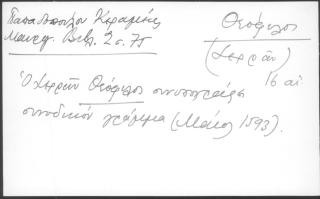 Παπαδοπούλου Κεραμέως
Μαυρογ. Βιβλ. 2 σ. 75
Θεόφιλος
(Σερρῶν)
16 αἰ
Ὁ Σερρῶν Θεόφιλος συνυπογράφει
συνοδικόν γράμμα (Μάιος 1593).